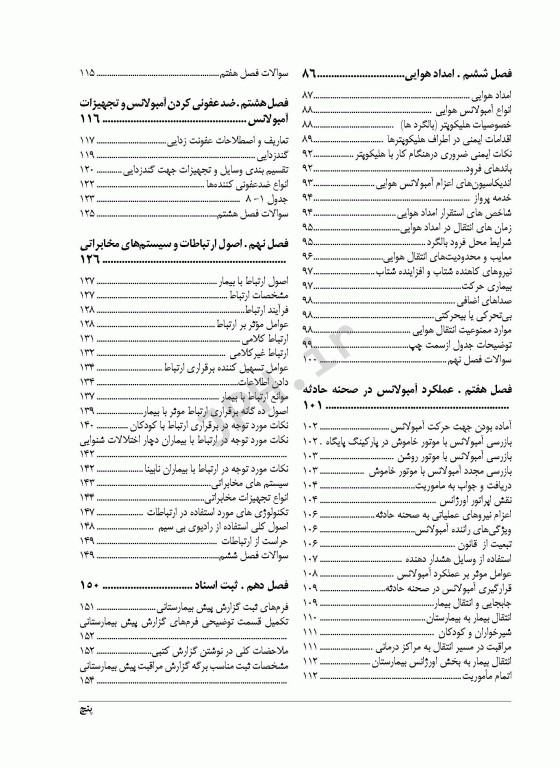 فصل ششم . امداد هوایی .......... ۸۶
امداد هوایی .......... ۸۷
انواع آمبولانس هوایی .......... ۸۸
خصوصیات هلیکوپتر (بالگرد ها) .......... ۸۸
اقدامات ایمنی در اطراف هلیکوپترها .......... ۸۹
نکات ایمنی ضروری درهنگام کار با هلیکوپتر .......... ۹۲
باندهای فرود .......... ۹۲
اندیکاسیون‌های اعزام آمبولانس هوایی .......... ۹۳
خدمه پرواز .......... ۹۴
شاخص های استقرار امداد هوایی .......... ۹۴
زمان های انتقال در امداد هوایی .......... ۹۵
شرایط محل فرود بالگرد .......... ۹۵
معایب و محدودیت‌های انتقال هوایی .......... ۹۶
نیروهای کاهنده شتاب و افزاینده شتاب .......... ۹۷
بیماری حرکت .......... ۹۷
صداهای اضافی .......... ۹۸
بی‌تحرکی یا بیحرکتی .......... ۹۸
موارد ممنوعیت انتقال هوایی .......... ۹۸
توضیحات جدول ازسمت چپ .......... ۹۹
سوالات فصل نهم .......... ۱۰۰
فصل هفتم . عملکرد آمبولانس در صحنه حادثه
.......... ۱۰۱
آماده بودن جهت حرکت آمبولانس .......... ۱۰۲
بازرسی آمبولانس با موتور خاموش در پارکینگ پایگاه . ۱۰۲
بازرسی آمبولانس با موتور روشن .......... ۱۰۳
بازرسی مجدد آمبولانس با موتور خاموش .......... ۱۰۳
دریافت و جواب به ماموریت .......... ۱۰۴
نقش اپراتور اورژانس .......... ۱۰۴
اعزام نیروهای عملیاتی به صحنه حادثه .......... ۱۰۶
ویژگی‌های راننده آمبولانس .......... ۱۰۶
تبعیت از قانون .......... ۱۰۶
استفاده از وسایل هشدار دهنده .......... ۱۰۷
عوامل موثر بر عملکرد آمبولانس .......... ۱۰۸
قرارگیری آمبولانس در صحنه حادثه .......... ۱۰۹
جابجایی و انتقال بیمار .......... ۱۰۹
انتقال بیمار به بیمارستان .......... ۱۱۰
شیرخواران و کودکان .......... ۱۱۱
مراقبت در مسیر انتقال به مراکز درمانی .......... ۱۱۱
انتقال بیمار به بخش اورژانس بیمارستان .......... ۱۱۲
اتمام ماموریت .......... ۱۱۲
سوالات فصل هفتم .......... ۱۱۵
فصل هشتم . ضدعفونی کردن آمبولانس و تجهیزات
آمبولانس .......... ۱۱۶
تعاریف و اصطلاحات عفونت زدایی .......... ۱۱۷
گندزدایی .......... ۱۱۹
تقسیم بندی وسایل و تجهیزات جهت گندزدایی .......... ۱۲۰
انواع ضدعفونی کننده‌ها .......... ۱۲۲
جدول ۱- ۸ .......... ۱۲۳
سوالات فصل هشتم .......... ۱۲۵
فصل نهم . اصول ارتباطات و سیستم‌های مخابراتی
.......... ۱۲۶
اصول ارتباط با بیمار .......... ۱۲۷
مشخصات ارتباط .......... ۱۲۷
فرآیند ارتباط .......... ۱۲۸
عوامل مؤثر بر ارتباط .......... ۱۲۸
ارتباط کلامی .......... ۱۳۱
ارتباط غیرکلامی .......... ۱۳۲
عوامل تسهیل کننده برقراری ارتباط .......... ۱۳۴
دادن اطلاعات .......... ۱۳۴
موانع ارتباط با بیمار .......... ۱۳۷
اصول ده گانه برقراری ارتباط موثر با بیمار .......... ۱۳۹
نکات مورد توجه در برقراری ارتباط با کودکان .......... ۱۴۰
نکات مورد توجه در ارتباط با بیماران دچار اختلالات شنوایی
.......... ۱۴۲
نکات مورد توجه در ارتباط با بیماران نابینا .......... ۱۴۲
سیستم های مخابراتی .......... ۱۴۳
انواع تجهیزات مخابراتی .......... ۱۴۴
تکنولوژی های مورد استفاده در ارتباطات .......... ۱۴۷
اصول کلی استفاده از رادیوی بی سیم .......... ۱۴۸
حراست از ارتباطات .......... ۱۴۹
سوالات فصل ششم .......... ۱۴۹
فصل دهم . ثبت اسناد .......... ۱۵۰
فرم‌های ثبت گزارش پیش بیمارستانی .......... ۱۵۱
تکمیل قسمت توضیحی فرم‌های گزارش پیش بیمارستانی
.......... ۱۵۲
ملاحضات کلی در نوشتن گزارش کتبی .......... ۱۵۲
مشخصات ثبت مناسب برگه گزارش مراقبت پیش بیمارستانی
.......... ۱۵۴
پنج